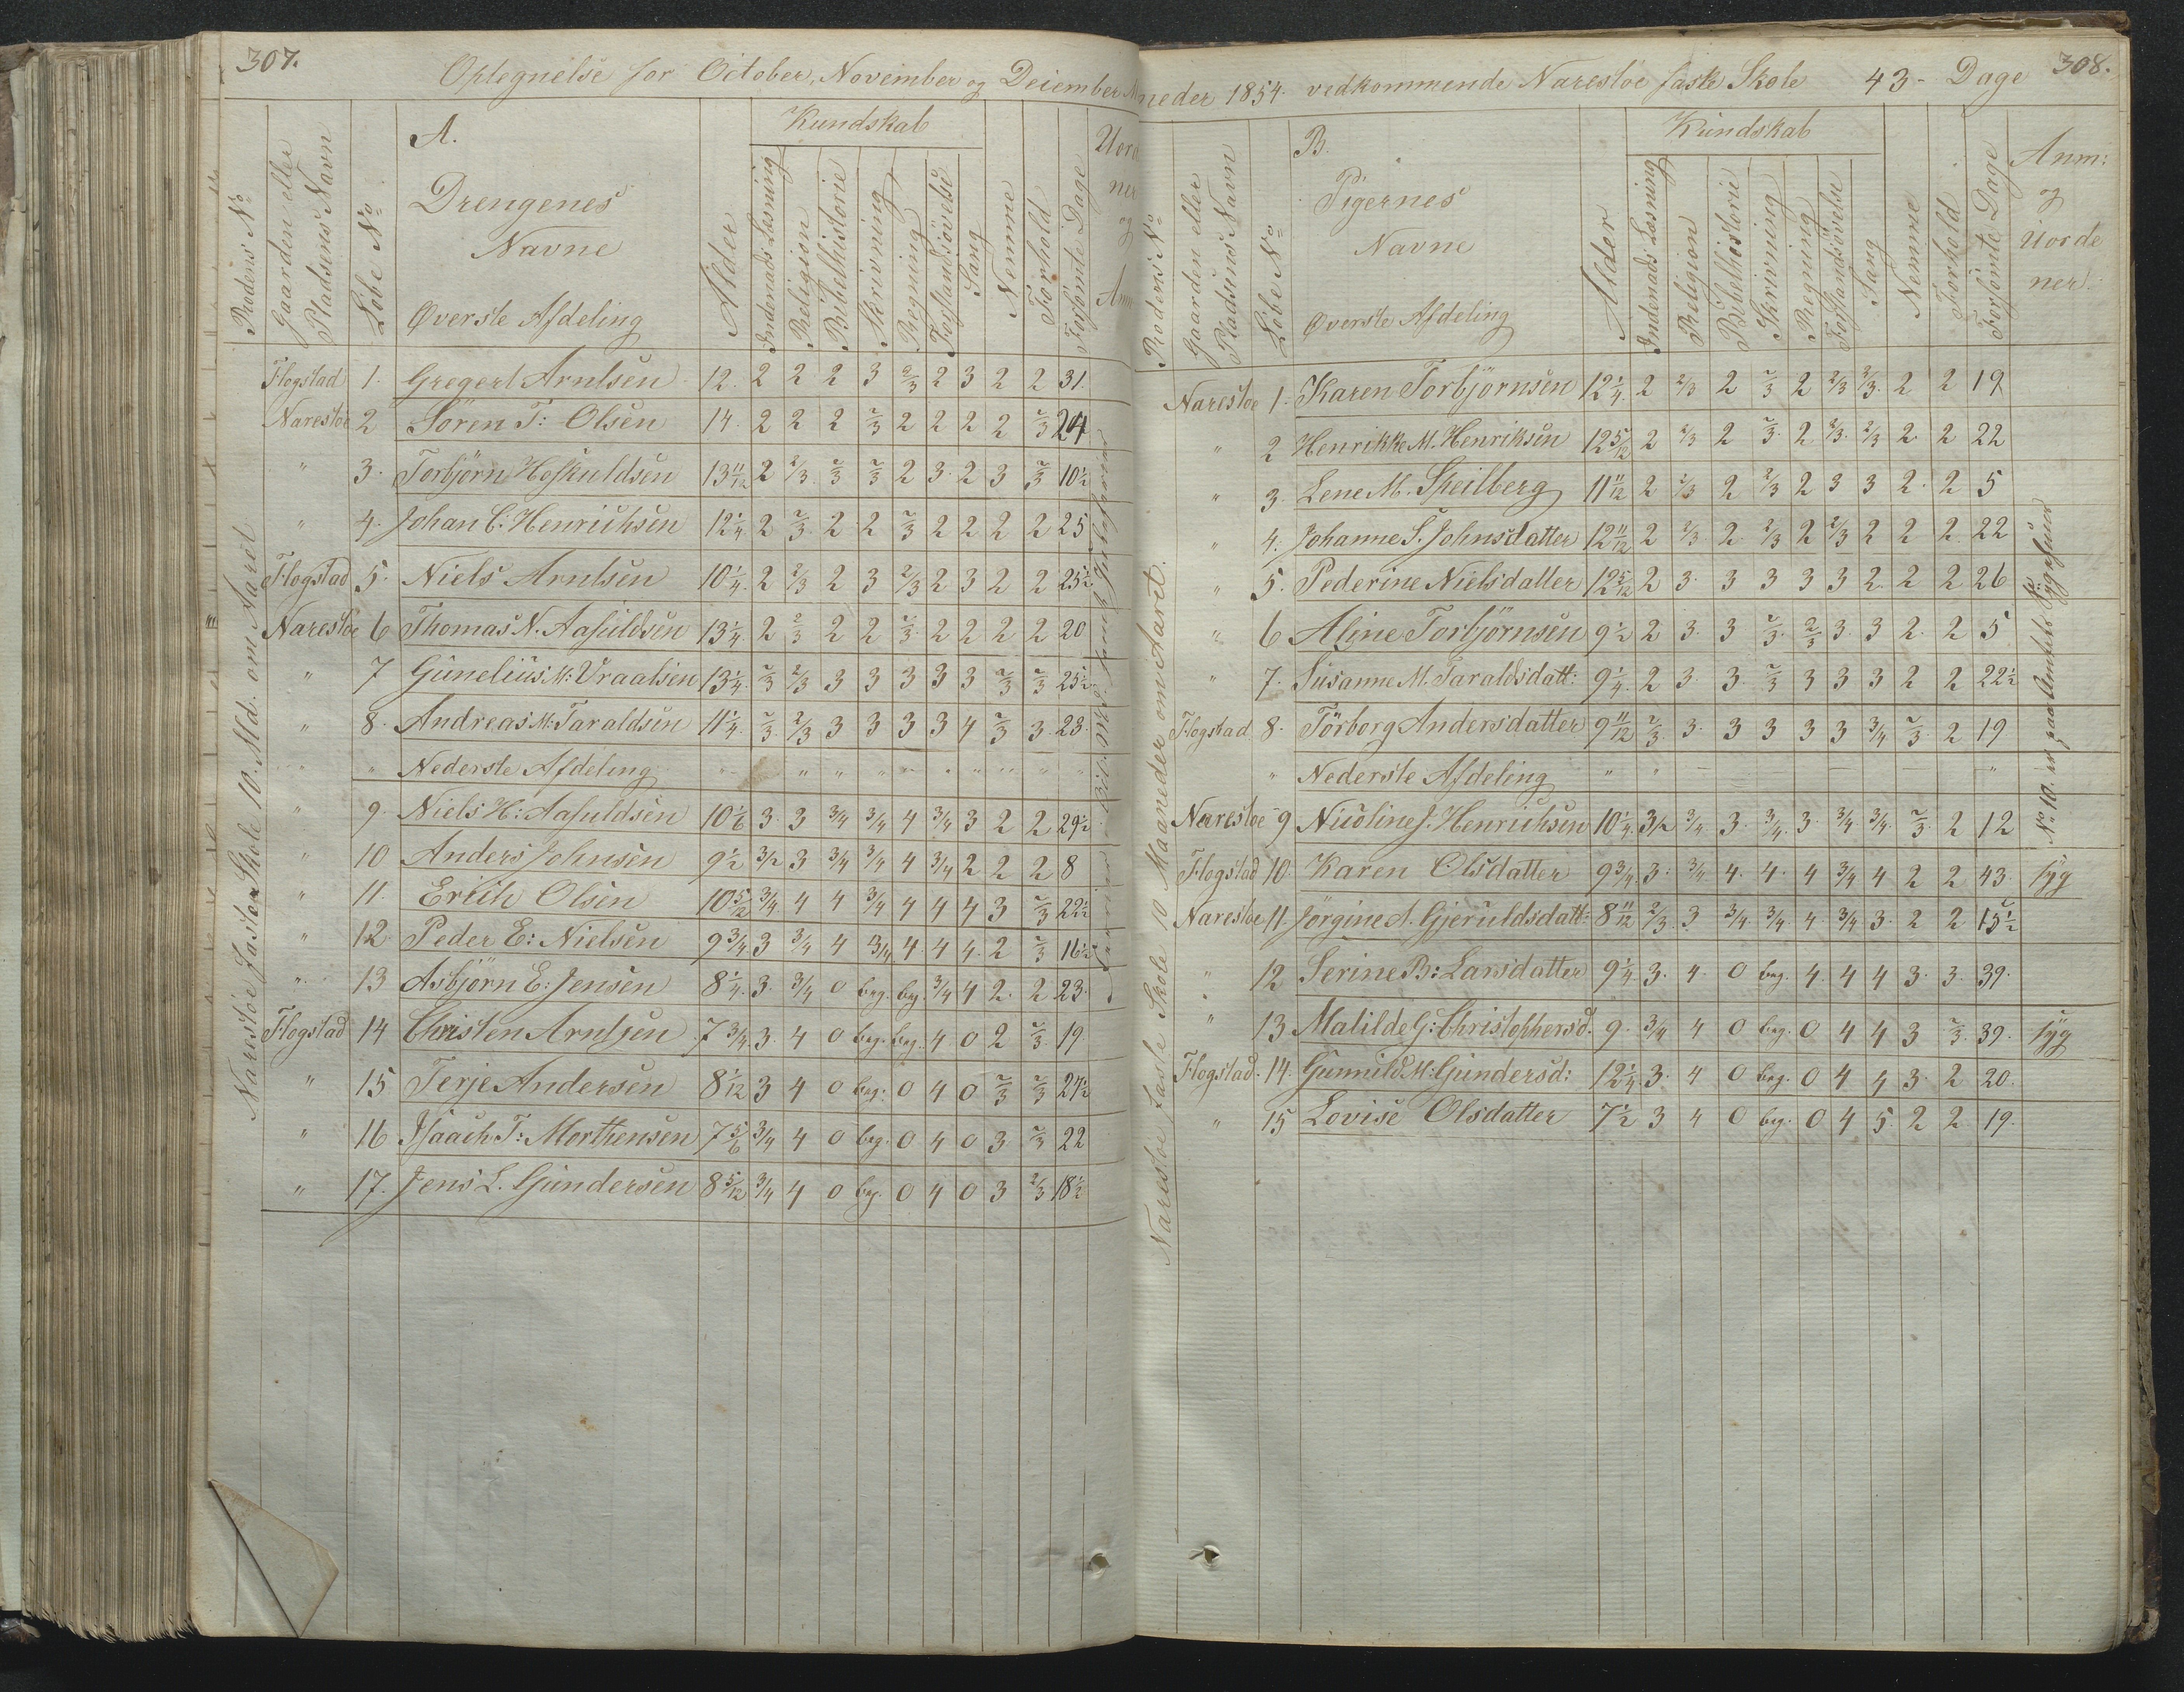 307.
Optegnelse for October, November og December
A.
Kundskab
Rodens No
Gaarden eller Pladsens Navn
Löbe No
Drengenes
Navne
Øverste Afdeling
Alder
Indenads Læsning
Religion
Bibelhistorie
Skrivning
Regning
Sang
Nemme
Forhold
Forsömte Dage
Flogstad 1. Gregert Arntsen 12. 2 2 2 3 2/3 2 3 2 2 31.
Narestöe 2 Sören T: Olsen 14. 2 2 2 2/3 2 2 2 2 2/3 24
" 3. Torbjörn Hoskuldsen 13 11/12 2 2/3 2/3 2/3 2 3 2 3 2/3 10½
" 4. Johan C: Henrichsen 12¼ 2 2/3 2 2 2/3 2 2 2 2 25
Flogstad 5. Niels Arntsen 10¼ 2 2/3 2 3 2/3 2 3 2 2 25½
Narestöe 6 Thomas N. Aasuldsen 13¼ 2 2/3 2 2 2/3 2 2 2 2 20
" 7 Gunelius M: Vraalsen 13¼ 2/3 2/3 3 3 3 3 3 2/3 2/3 25½
" 8. Andreas M: Taraldsen 11¼ 2/3 2/3 3 3 3 3 4 2/3 3 23.
" Nederste Afdeling
" 9. Niels H: Aasuldsen 10 1/6 3 3 3/4 3/4 4 3/4 3 2 2 29½
" 10 Anders Johnsen 9½ 3/2 3 3/4 3/4 4 3/4 2 2 2 8
" 11. Erich Olsen 10 5/12 3/4 4 4 3/4 4 4 4 3 2/3 22½
" 12. Peder E: Nielsen 9 3/4 3 3/4 4 3/4 4 4 4 2 2/3 16½
" 13 Asbjörn E: Jensen 8¼ 3 3/4 0 beg. beg. 3/4 4 2 2 23.
Flogstad 14 Christen Arntsen 7 3/4 3 4 0 beg. beg. 4 0 2 2/3 19.
" 15 Terje Andersen 8 1/12 3 4 0 beg: 0 4 0 2/3 2/3 27½
" 16 Isaach T: Morthensen 7 5/6 3/4 4 0 beg. 0 4 0 3 2/3 22
" 17. Jens L. Gundersen 8 5/12 3/4 4 0 beg. 0 4 0 3 2/3 18½
Narestöe faste Skole 10. Md. om Aaret
308.
neder 1854. vedkommende Narestöe faste Skole 43 - Dage
B.
Kundskab
Rodens No
Gaarden eller Pladsens Navn
Löbe No
Pigernes
Navne
Øverste Afdeling
Alder
Indenads Læsning
Religion
Bibelhistorie
Skrivning
Regning
Sang
Nemme
Forhold
Forsömte Dage
Anm:
og
Uorde
ner.
Narestöe 1. Karen Torbjörnsen 12¼ 2 2/3 2 2/3 2 2/3 2/3 2 2 19
" 2 Henrikke M. Henriksen 12 5/12 2 2/3 2 2/3 2 2/3 2/3 2 2 22
" 3. Lene M. Speilberg 11 11/12 2 2/3 2 2/3 2 3 3 2 2 5
" 4. Johanne S. Johnsdatter 12 11/12 2 2/3 2 2/3 2 2/3 2 2 2 22
" 5. Pederine Nielsdatter 12 5/12 2 3 3 3 3 3 2 2 2 26
" 6 Aline Torbjörnsen 9½ 2 3 3 2/3 2/3 3 3 2 2 5
" 7. Susanne M. Taraldsdatt: 9¼ 2 3 3 2/3 3 3 3 2 2 22½
Flogstad 8. Törborg Andersdatter 9 11/12 2/3 3 3 3 3 3 3/4 2/3 2 19
" Nederste Afdeling
Narestöe 9 Nicoline J. Henrichsen 10¼ 3/2 3/4 3 3/4 3 3/4 3/4 2/3 2 12
Flogstad 10. Karen Olsdatter 9 3/4 3 3/4 4 4 4 3/4 4 2 2 43 syg
Narestöe 11. Jörgine A. Gjeruldsdatt: 8 11/12 2/3 3 3/4 3/4 4 3/4 3 2 2 15½
" 12 Serine B: Larsdatter 9¼ 3 4 0 beg. 4 4 4 3 3 39.
" 13 Matilde G: Christophersd. 9. 3/4 4 0 beg. 0 4 4 3 2/3 39. syg
Flogstad. 14. Gunnild M: Gundersd: 12¼ 3 4 0 beg. 0 4 4 3 2 20.
" 15 Lovise Olsdatter 7½ 3 4 0 beg. 0 4 5 2 2 19.
Narestöe faste Skole 10 Maaneder om Aaret.